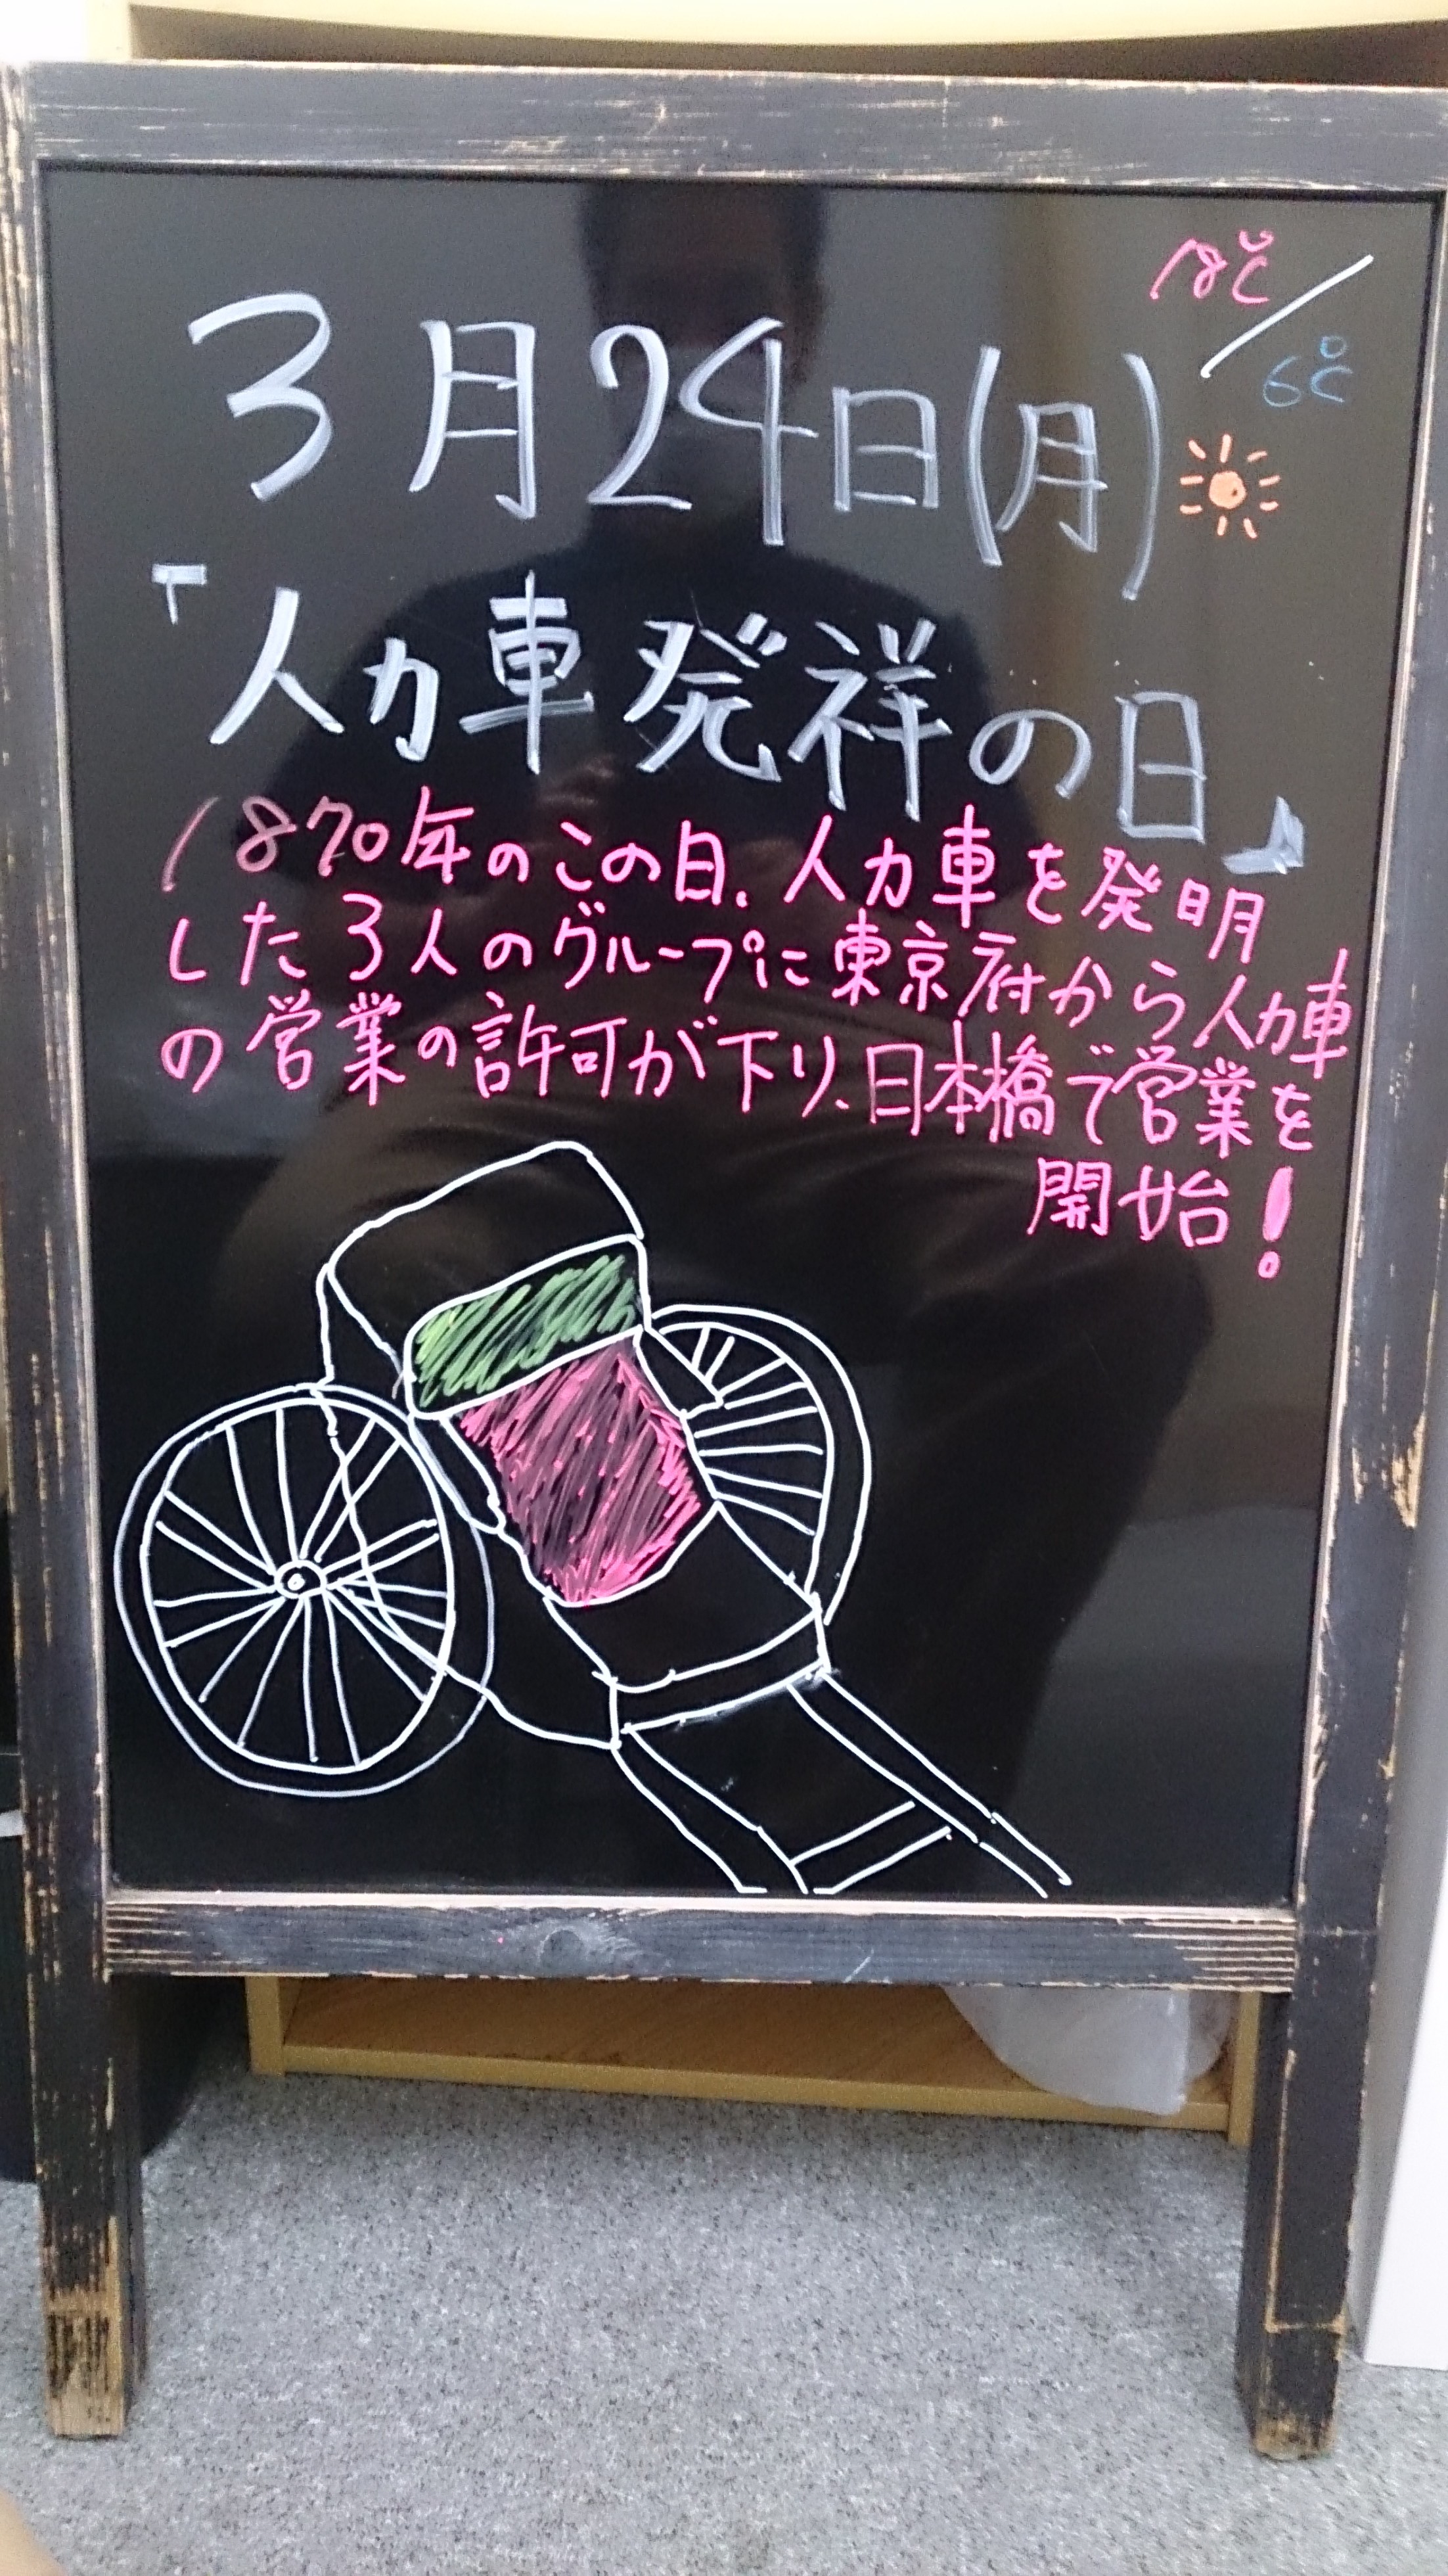 18℃/6℃
3月24日(月)
「人力車発祥の日」
1870年のこの日、人力車を発明
した3人のグループに東京府から人力車
の営業の許可が下り、日本橋で営業を
開始!